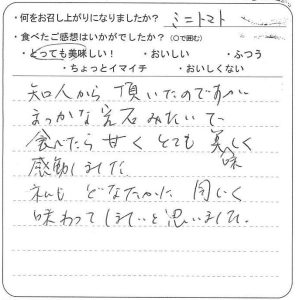 ・何をお召し上がりになりましたか？ ミニトマト
・食べたご感想はいかがでしたか？（○で囲む）
・とっても美味しい！ ・おいしい ・ふつう
・ちょっとイマイチ ・おいしくない
知人から頂いたのですが
まっかな宝石みたいで
食べたら甘くとても美味しく
感動しました
私も どなたかに 同じく
味わってほしいと思いました。